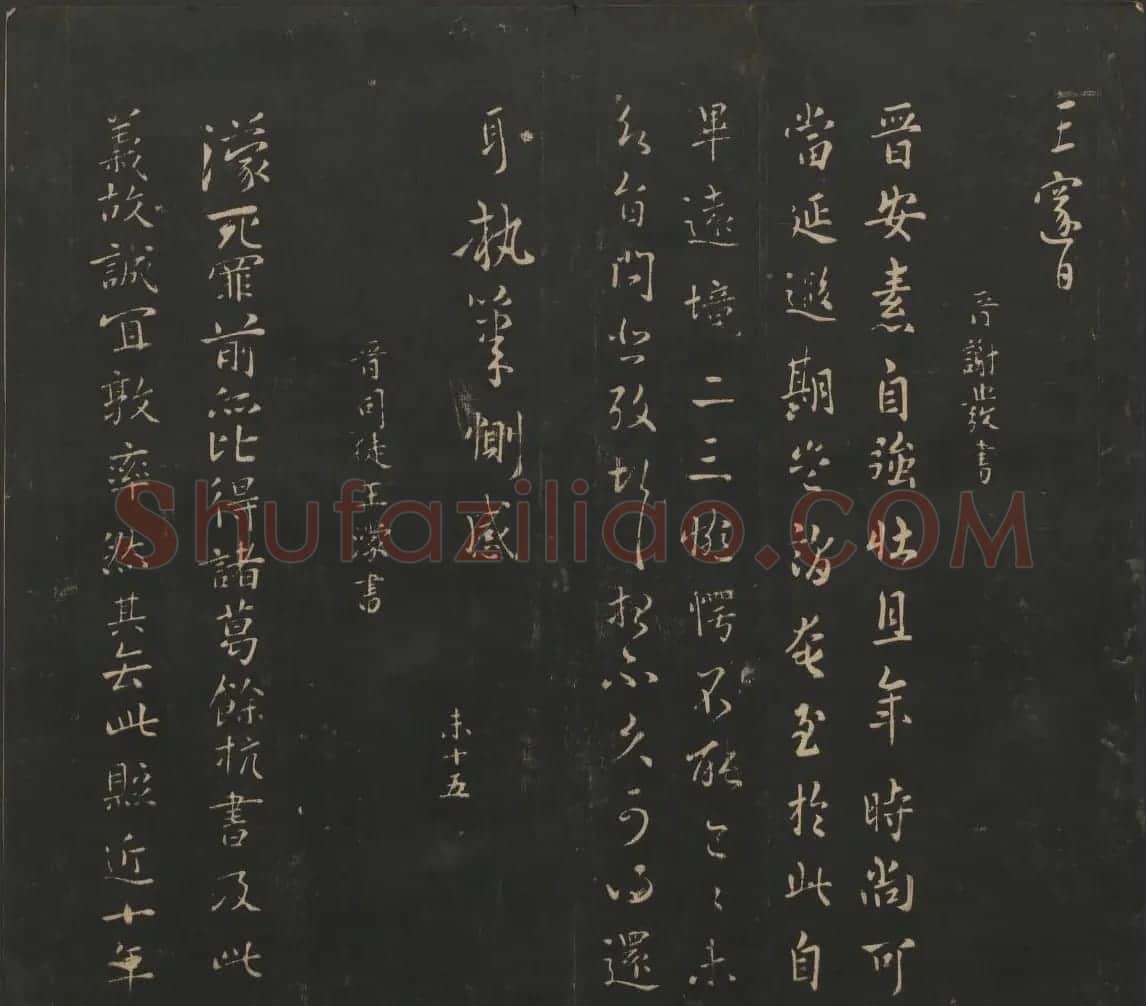 王邃白
晋謝書
晋安素自強壯且年時尚可
當延遐期豈謂奄至於此自
畢遠境二三悲愕不能已〻未
問悲亦久可得還
耳執筆惻感
未十五
晋司徒王濛書
濛死罪前比得諸葛餘杭書及此
義故誠宜敦率然其去此縣近十年
Shufaziliao.COM